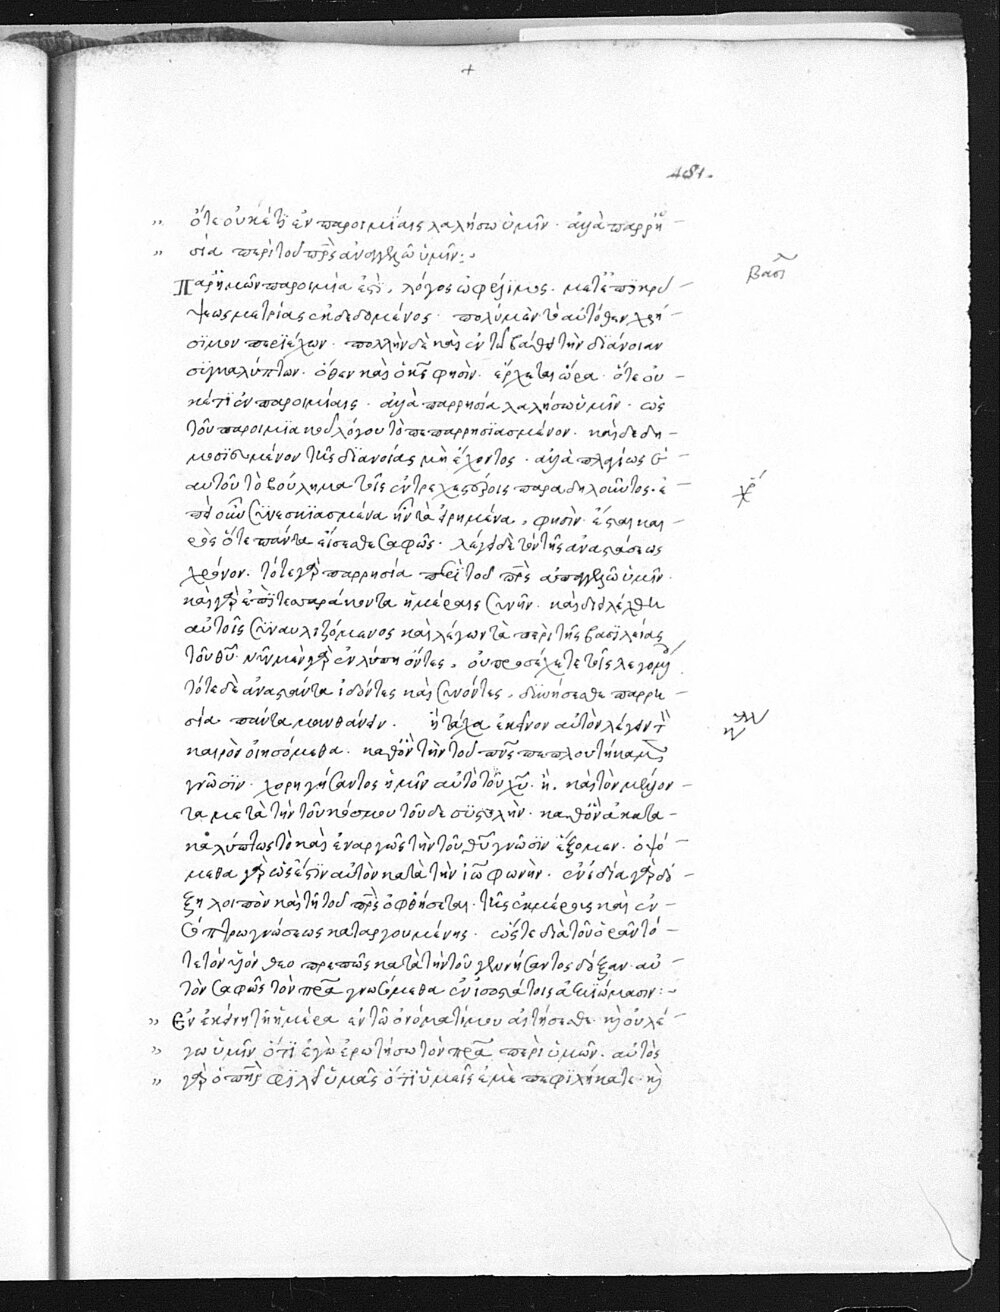 +
481.
" ὅτε οὐκέτι ἐν παροιμίαις λαλήσω ὑμῖν· ἀλλὰ παρρη
" σία περὶ τοῦ πρς ἀναγγελῶ ὑμῖν:
βασι
Παρ' ἡμῶν παροιμία ἐστὶ, λόγος ὠφέλιμος. μετ' ἐπικρύ
ψεως μετρίας ἐκδεδομένος· πολὺ μὲν τὸ αὐτόθεν χρή
σιμον περιέχων· πολλὴν δὲ καὶ ἐν τῷ βάθει τὴν διάνοιαν
συγκαλύπτων. ὅθεν καὶ ὁ κς φησίν· ἔρχεται ὥρα· ὅτε οὐ
κέτι ἐν παροιμίαις· ἀλλὰ παρρησία λαλήσω ὑμῖν· ὡς
τοῦ παροιμιακοῦ λόγου τὸ πεπαρρησιασμένον· καὶ δεδη
μοσιευμένον τῆς διανοίας μὴ ἔχοντος· ἀλλὰ πλαγίως
αὐτοῦ τὸ βούλημα τοῖς ἐντρεχεστέροις παραδηλοῦντος. ἐ
πεὶ οὖν συνεσκιασμένα ἦν τὰ εἰρημένα, φησὶν· ἔσται και
ρὸς ὅτε πάντα εἴσεσθε σαφῶς· λέγει δὲ τὸν τῆς ἀναστάσεως
χρόνον. τότε γὰρ παρρησία περὶ τοῦ πρς ἀπαγγελῶ ὑμῖν.
καὶ γὰρ ἐπὶ τεσσαράκοντα ἡμέραις συνῆν· καὶ διελέχθη
αὐτοῖς συναυλιζόμενος καὶ λέγων τὰ περὶ τῆς βασιλείας
τοῦ θυ· νῦν μὲν γὰρ ἐν λύπη ὄντες, οὐ προσέχετε τοῖς λεγομέ
τότε δὲ ἀναστάντα ἰδόντες καὶ συνόντες, δυνήσεσθε παρρη
σία πάντα μανθάνειν. ἢ τάχα ἐκεῖνον αὐτὸν λέγειν τὸν
καιρὸν οἰησόμεθα. καθ' ὃν τὴν τοῦ πνς πεπλουτήκαμεν
γνῶσιν· χορηγήσαντος ἡμῖν αὐτὸ τοῦ χυ. ἢ. καὶ τὸν μέλλον
τα μετὰ τὴν τοῦ κόσμου τοῦδε συστολὴν· καθ' ὃν ἀκατα
καλύπτως τὸ καὶ ἐναργῶς τὴν τοῦ θυ γνῶσιν ἕξομεν. ὀψό
μεθα γὰρ ὡς ἔστιν αὐτὸν κατὰ τὴν ἰω φωνήν· ἐν ἰδία γὰρ δό
ξη λοιπὸν καὶ τῆ τοῦ πρς ὀφθήσεται· τῆς ἐκ μέρους καὶ ἐν
ἐσόπτρω γνώσεως καταργουμένης. ὥστε διὰ τοῦ ὁρᾶν τό
τε τὸν υἱὸν θεοπρεπῶς κατὰ τὴν τοῦ γεννήσαντος δόξαν· αὐ
τὸν σαφῶς τὸν πρα γνωσόμεθα ἐν ἰσοστάτοις ἀξιώμασιν:
" Ἐν ἐκείνη τῆ ἡμέρα ἐν τῶ ὀνόματί μου αἰτήσεσθε· καὶ οὐ λέ
" γω ὑμῖν ὅτι ἐγὼ ἐρωτήσω τὸν πρα περὶ ὑμῶν. αὐτὸς
" γὰρ ὁ πηρ φιλεῖ ὑμᾶς ὅτι ὑμεῖς ἐμὲ πεφιλήκατε· καὶ